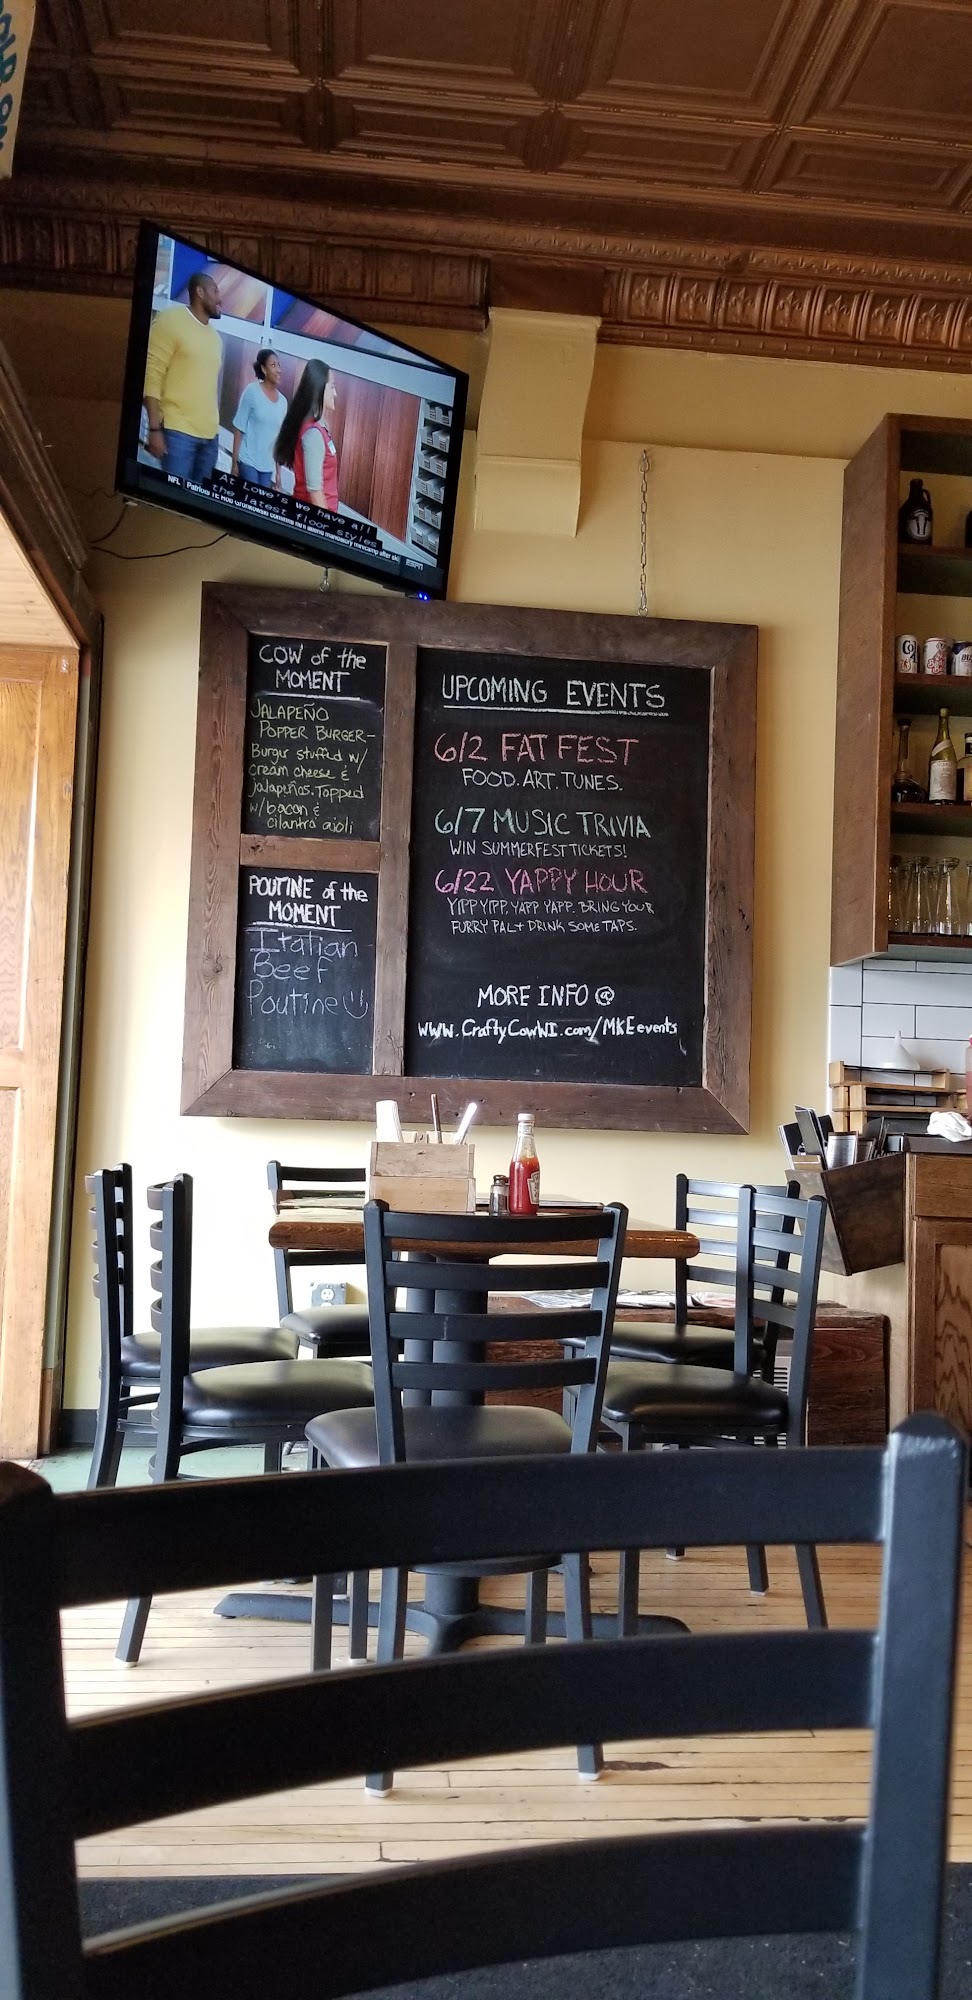 At Lowe's we have all
the latest floor styles
NFL
ESPN
COW of the
MOMENT
JALAPEÑO
POPPER BURGER-
Burger stuffed w/
cream cheese &
jalapeños. Topped
w/ bacon &
cilantro aioli
POUTINE of the
MOMENT
Italian
Beef
Poutine
UPCOMING EVENTS
6/2 FAT FEST
FOOD. ART. TUNES.
6/7 MUSIC TRIVIA
WIN SUMMERFEST TICKETS!
6/22 YAPPY HOUR
YIPP YIPP, YAPP YAPP. BRING YOUR
FURRY PAL + DRINK SOME TAPS.
MORE INFO @
WWW.CraftyCowWI.com/MKEevents